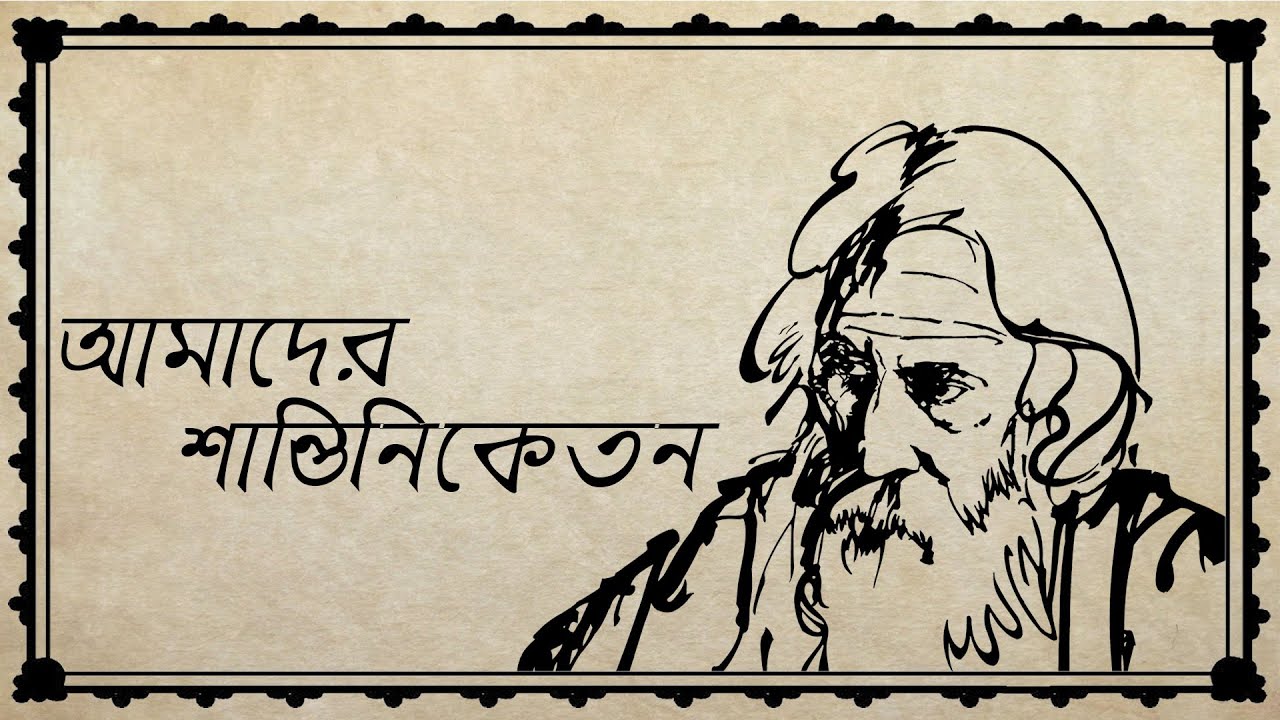 আমাদের
শান্তিনিকেতন